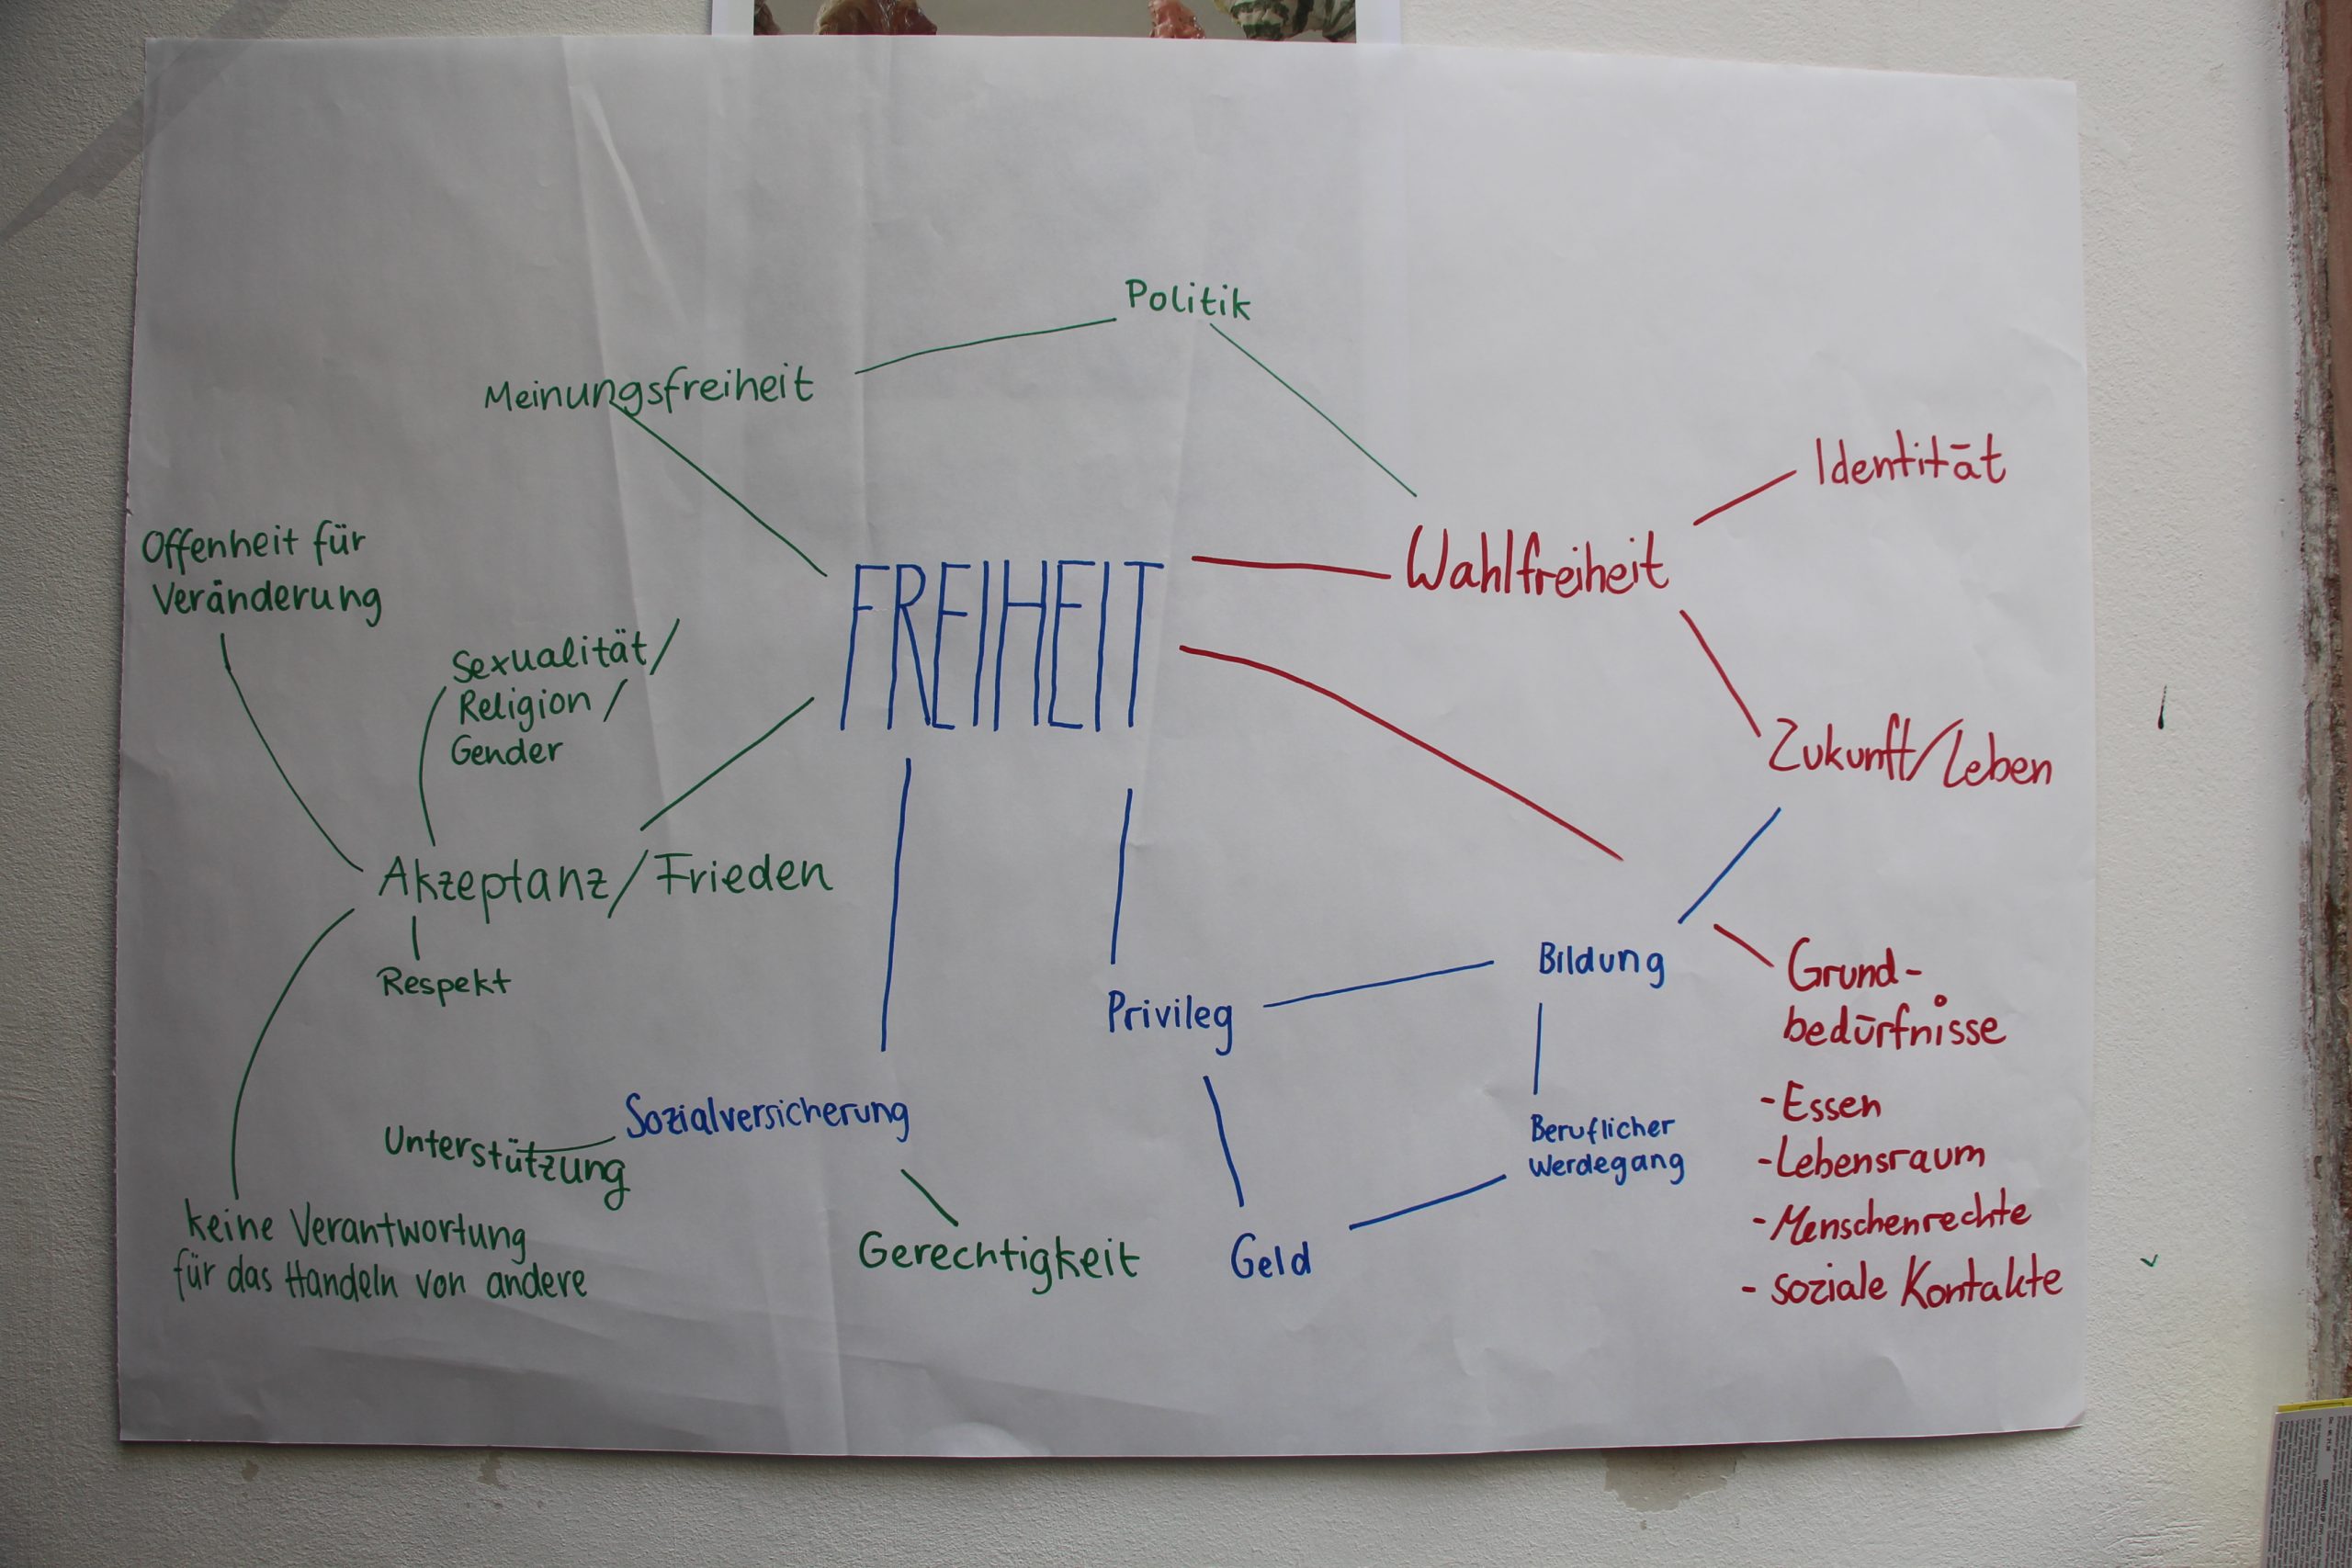 Politik
Meinungsfreiheit
Identität
Wahlfreiheit
Offenheit für
Veränderung
FREIHEIT
Sexualität/
Religion/
Gender
Zukunft/Leben
Akzeptanz/Frieden
Respekt
Bildung
Privileg
Grund-
bedürfnisse
-Essen
-Lebensraum
-Menschenrechte
- soziale Kontakte
Sozialversicherung
Unterstützung
Beruflicher
Werdegang
keine Verantwortung
für das Handeln von andere
Gerechtigkeit
Geld